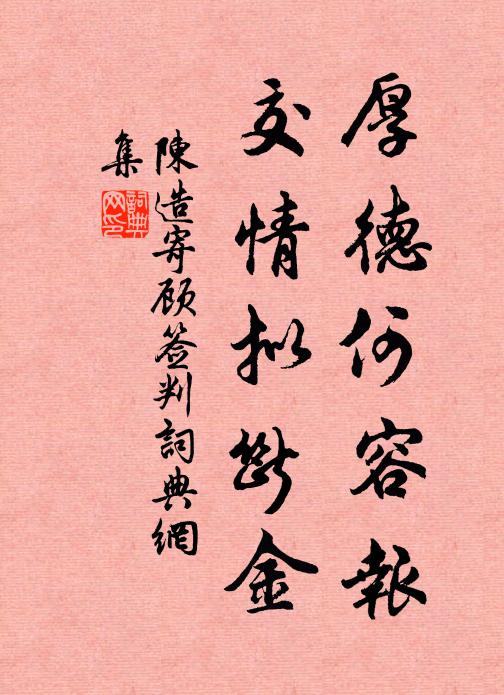 厚德何容報
交情拟斷金
陳造寄顧签判詞典網
集
詞典
网印